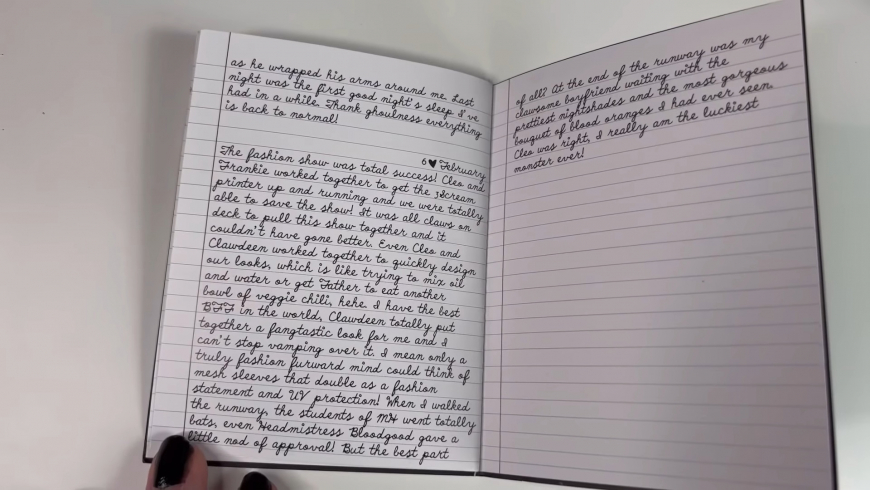 as he wrapped his arms around me. Last
night was the first good night's sleep I've
had in a while. Thank ghoulness everything
is back to normal!
6♥February
The fashion show was total success! Cleo and
Frankie worked together to get the 3Scream
printer up and running and we were totally
able to save the show! It was all claws on
deck to pull this show together and it
couldn't have gone better. Even Cleo and
Clawdeen worked together to quickly design
our looks, which is like trying to mix oil
and water or get Father to eat another
bowl of veggie chili, hehe. I have the best
BFF in the world, Clawdeen totally put
together a fangtastic look for me and I
can't stop vamping over it. I mean only a
truly fashion furward mind could think of
mesh sleeves that double as a fashion
statement and UV protection! When I walked
the runway, the students of MH went totally
bats, even Headmistress Bloodgood gave a
little nod of approval! But the best part
of all? At the end of the runway was my
clawsome boyfriend waiting with the
prettiest nightshades and the most gorgeous
bouquet of blood oranges I had ever seen.
Cleo was right, I really am the luckiest
monster ever!